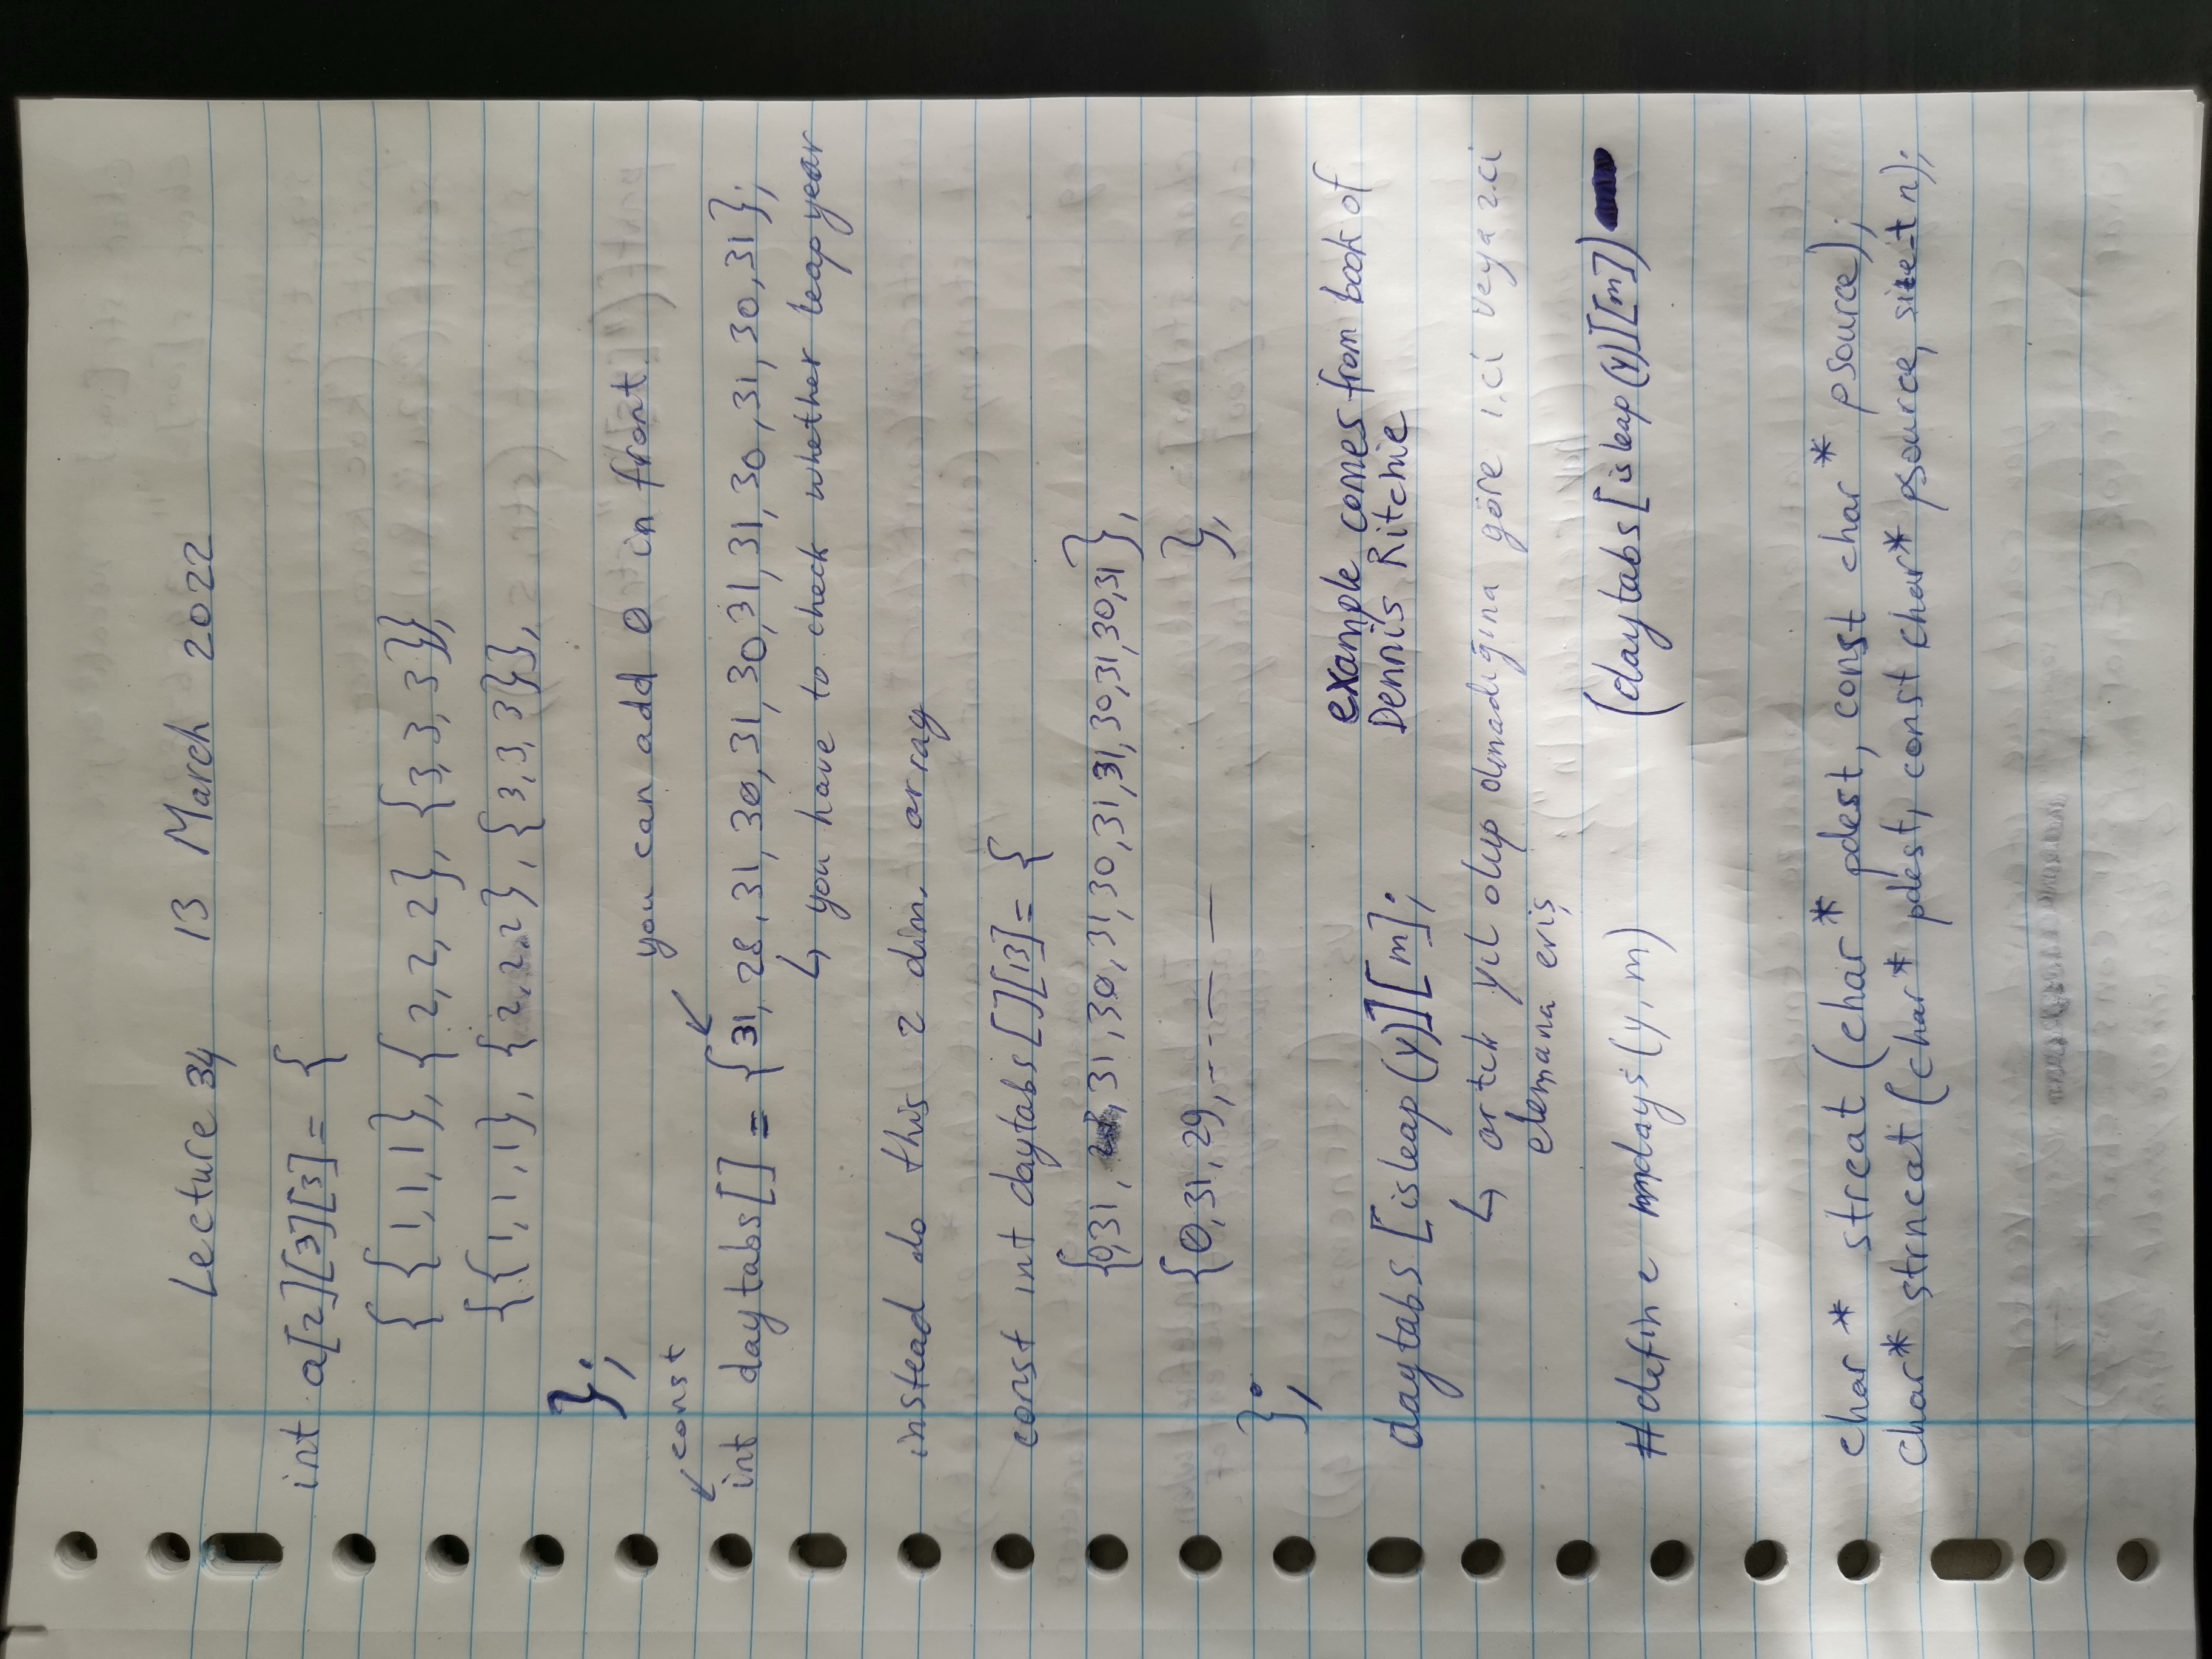 Lecture 34 13 March 2022
int a[2][3][3] = {
{ {1,1,1}, {2,2,2}, {3,3,3}},
{{1,1,1}, {2,2,2}, {3,3,3}},
};
you can add 0 in front.
const
int daytabs[] = {31, 28, 31, 30, 31, 30, 31, 31, 30, 31, 30, 31};
↳ you have to check whether leap year
instead do this 2 dim. array
const int daytabs[][13] = {
{0,31, 28, 31, 30, 31, 30, 31, 31, 30, 31, 30, 31},
{0, 31, 29, -- — — },
};
example comes from book of
Dennis Ritchie
daytabs [isleap(y)][m];
↳ artık yıl olup olmadığına göre 1.ci veya 2.ci
elemana eriş
#define mdays(y, m) (daytabs[isleap(y)][m])
char * strcat (char* pdest, const char * psource);
char* strncat (char* pdest, const char* psource, size_t n);